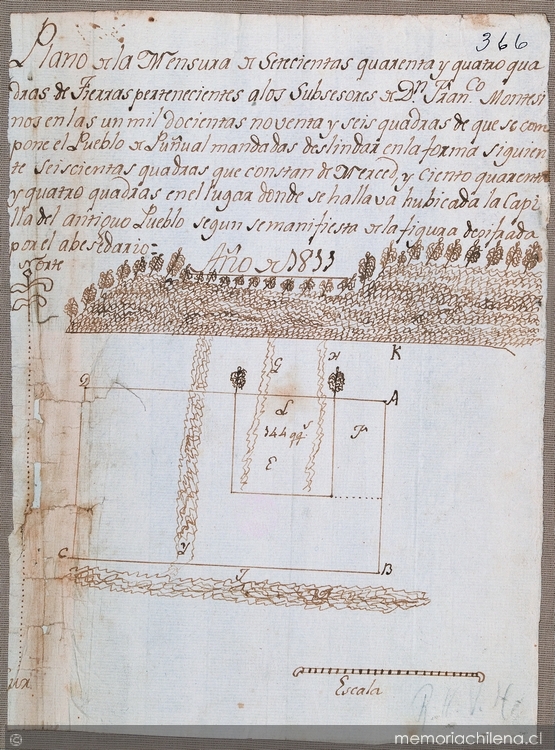 366
Plano de la Mensura de Setecientas quarenta y quatro qua
dras de Tierras pertenecientes a los Subsesores de Dn. Franco. Montesi
nos en las un mil docientas noventa y seis quadras de que se com
pone el Pueblo de Puñual mandadas deslindar en la forma siguien
te seiscientas quadras que constan de Merced, y ciento quarenta
y quatro quadras en el lugar donde se hallava hubicada la Capi
lla del antiguo Pueblo segun se manifiesta de la figura desifrada
por el abesedario=
Norte
Año de 1811
K
G
H
D
A
L
144 qqs
F
E
Y
C
J
B
Sur
Escala
memoriachilena.cl